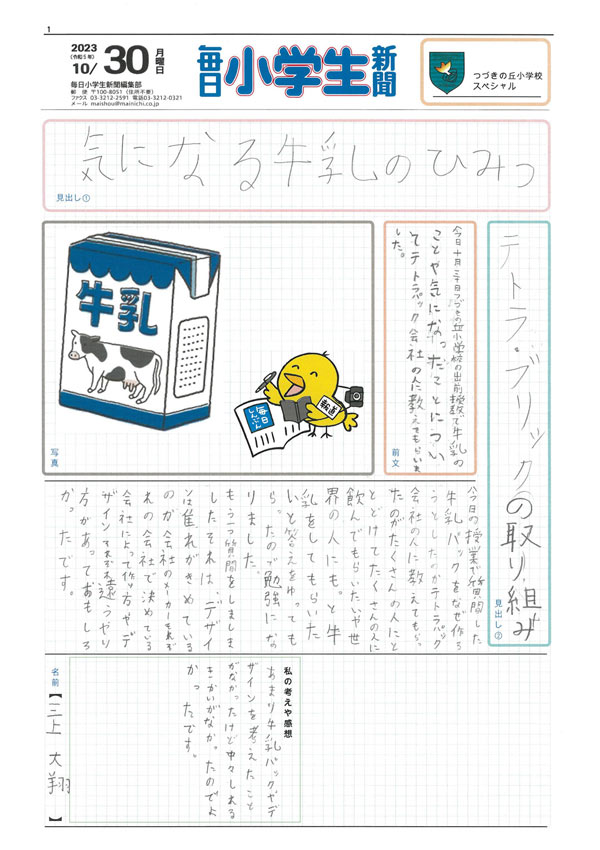 1
2023
(令和5年)
10/30 月曜日
毎日小学生新聞編集部
郵 便 〒100-8051 (住所不要)
ファクス 03-3212-2591 電話03-3212-0321
メール maishou@mainichi.co.jp
毎日小学生新聞
つづきの丘小学校
スペシャル
気になる牛乳のひみつ
見出し①
テトラ・ブリックの取り組み
見出し②
今日十月三十日つづきの丘小学校の出前授業で牛乳の
ことや気になったことについ
てテトラパック会社の人に教えてもらいま
した。
前文
牛乳
毎日しんぶん
報道
写真
今日の授業で質問した
牛乳パックをなぜ作ろ
うとしたのかテトラパック
会社の人に教えてもらっ
たのがたくさんの人にと
とどけてたくさんの人に
飲んでもらいたいや世
界の人にも。と牛
乳をしてもらいた
いと答えをゆっても
らったので勉強にな
りました。
もう一つ質問をしまし
したそれは、デザイ
ンは誰れがきめている
のか会社のメーカーそれぞ
れの会社で決めている
会社によって作り方やデ
ザインそれぞれ違うやり
方があっておもしろ
かったです。
私の考えや感想
あまり牛乳パックやデ
ザインを考えたこと
がなかったけど中々しれる
きかいがなかったのでよ
かったです。
名前【三上 大翔】